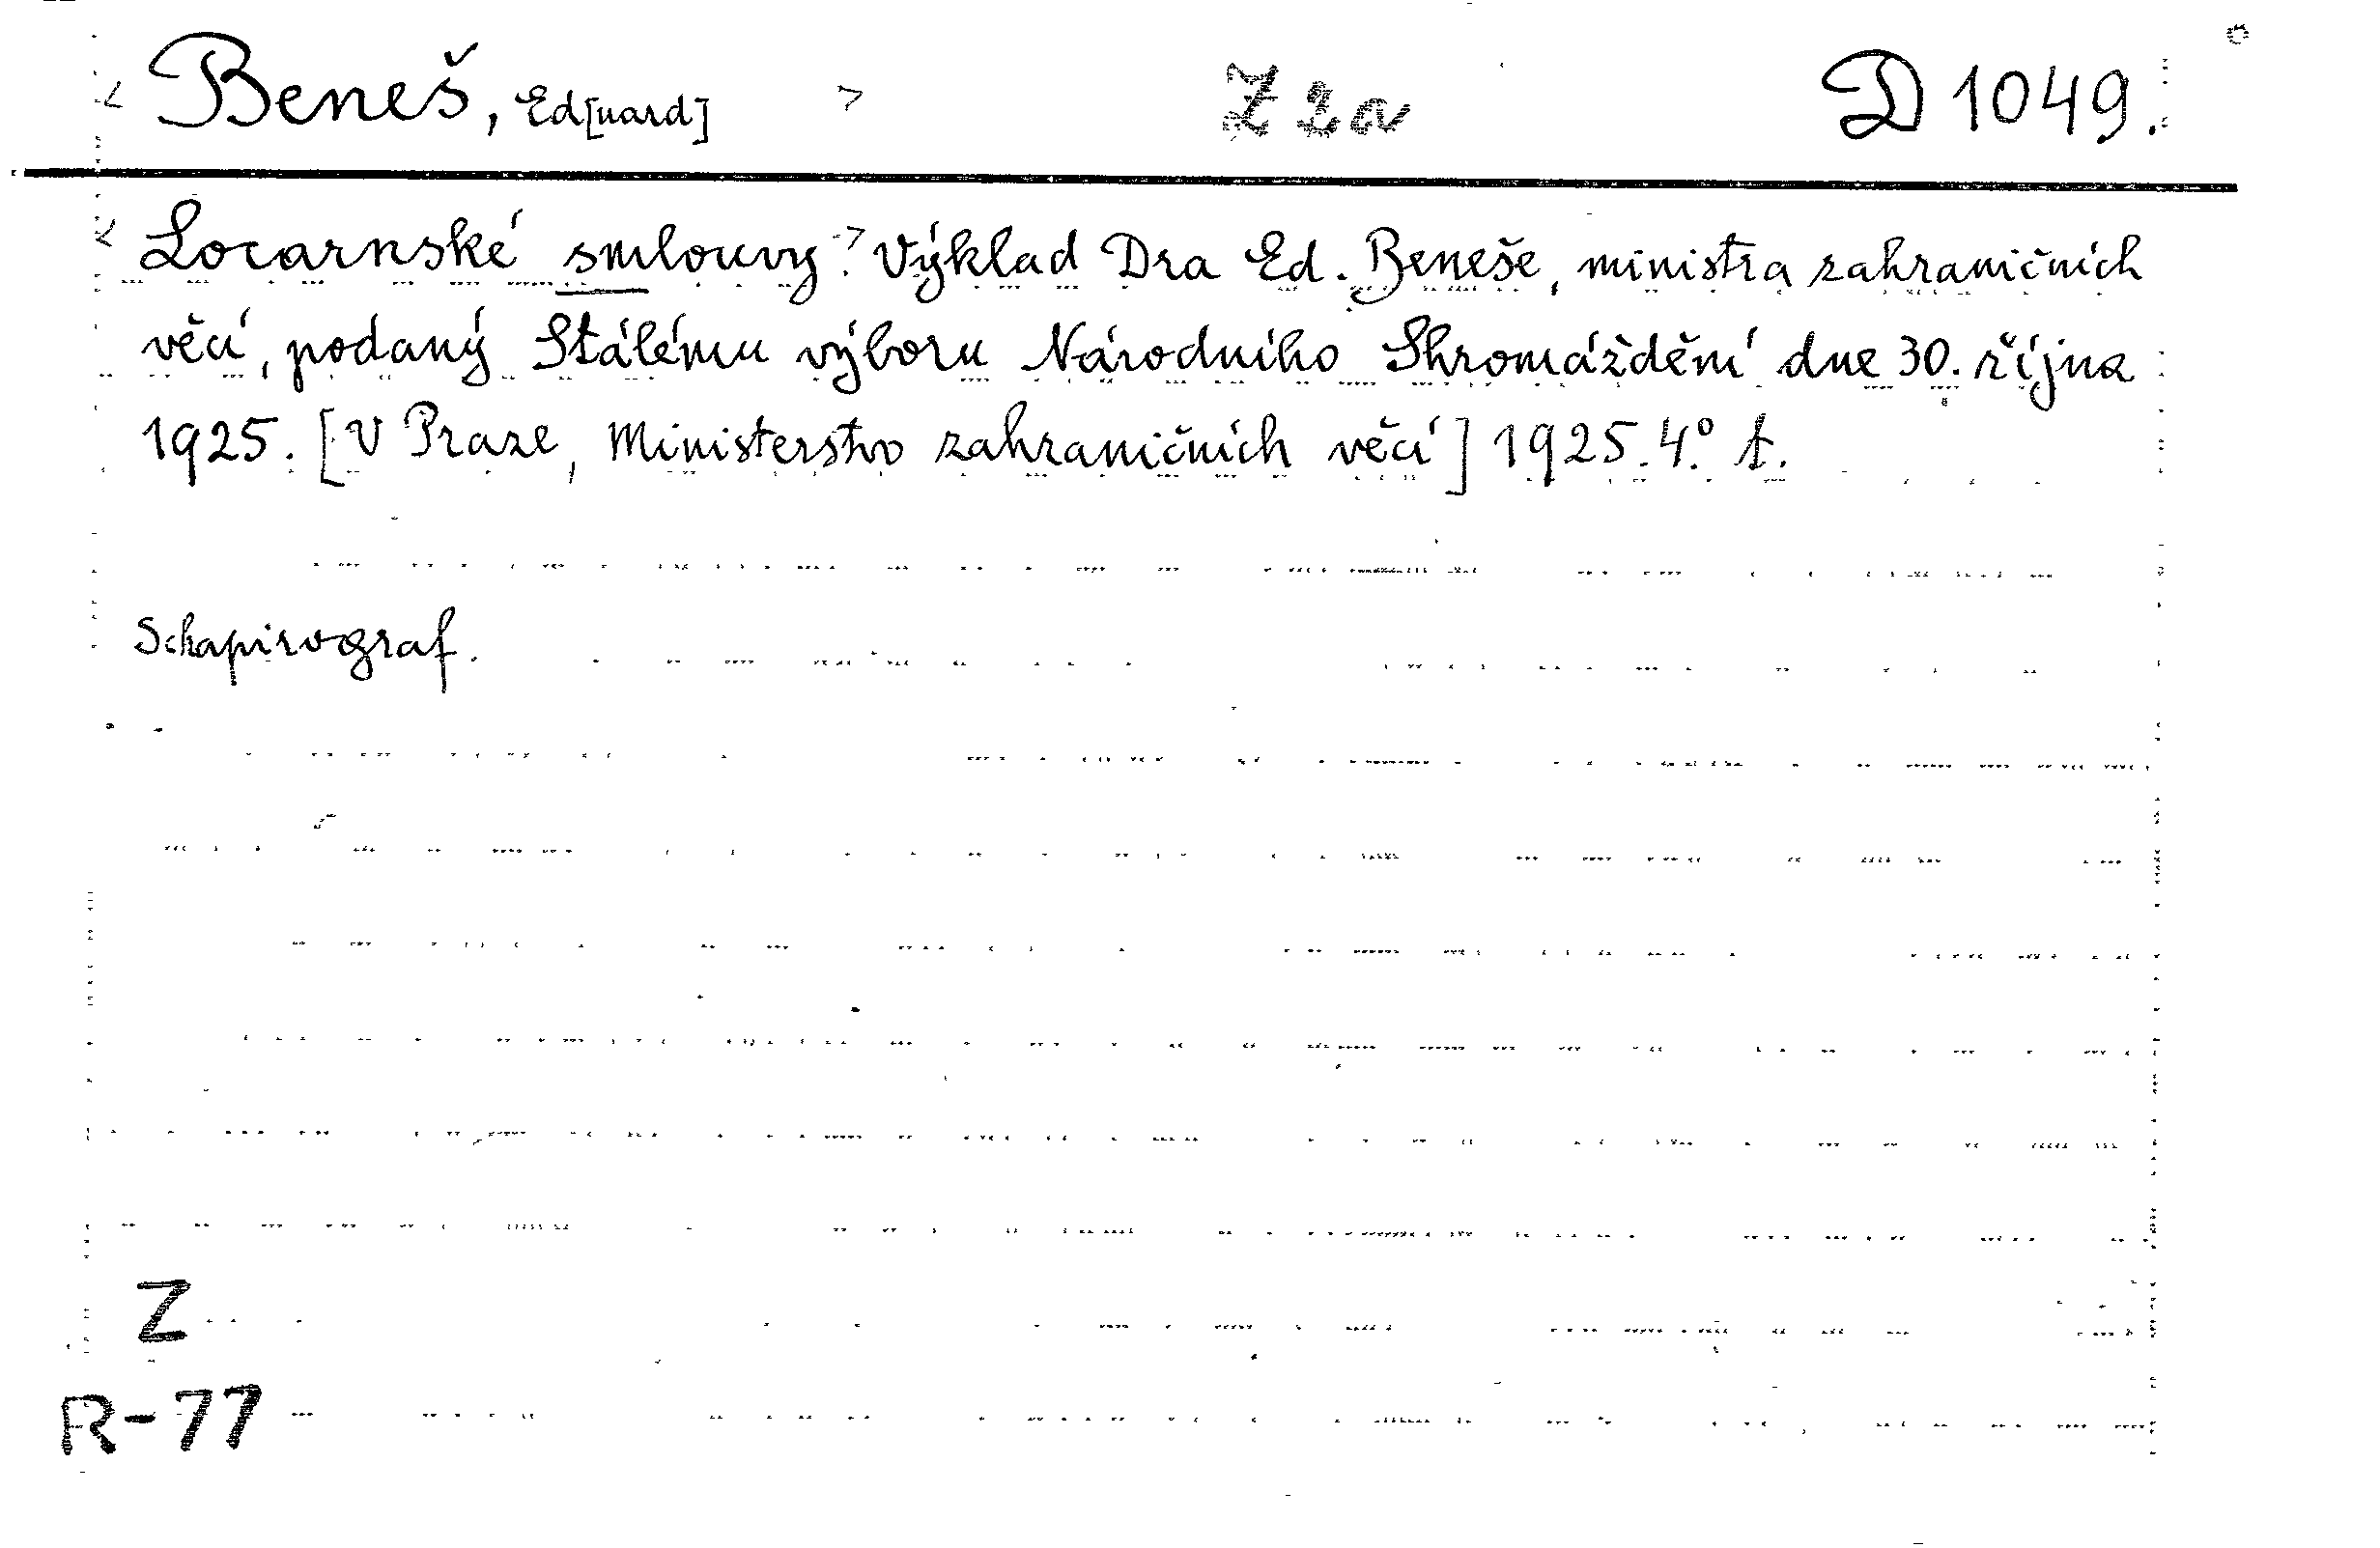 < Beneš, Ed[uard] > Z 2a D 1049.
< Locarnské smlouvy.> Výklad Dra Ed. Beneše, ministra zahraničních
věcí, podaný Stálému výboru Národního Shromáždění dne 30. října
1925. [V Praze, Ministerstvo zahraničních věcí] 1925. 4.° A.
Schapirograf.
Z
R-77